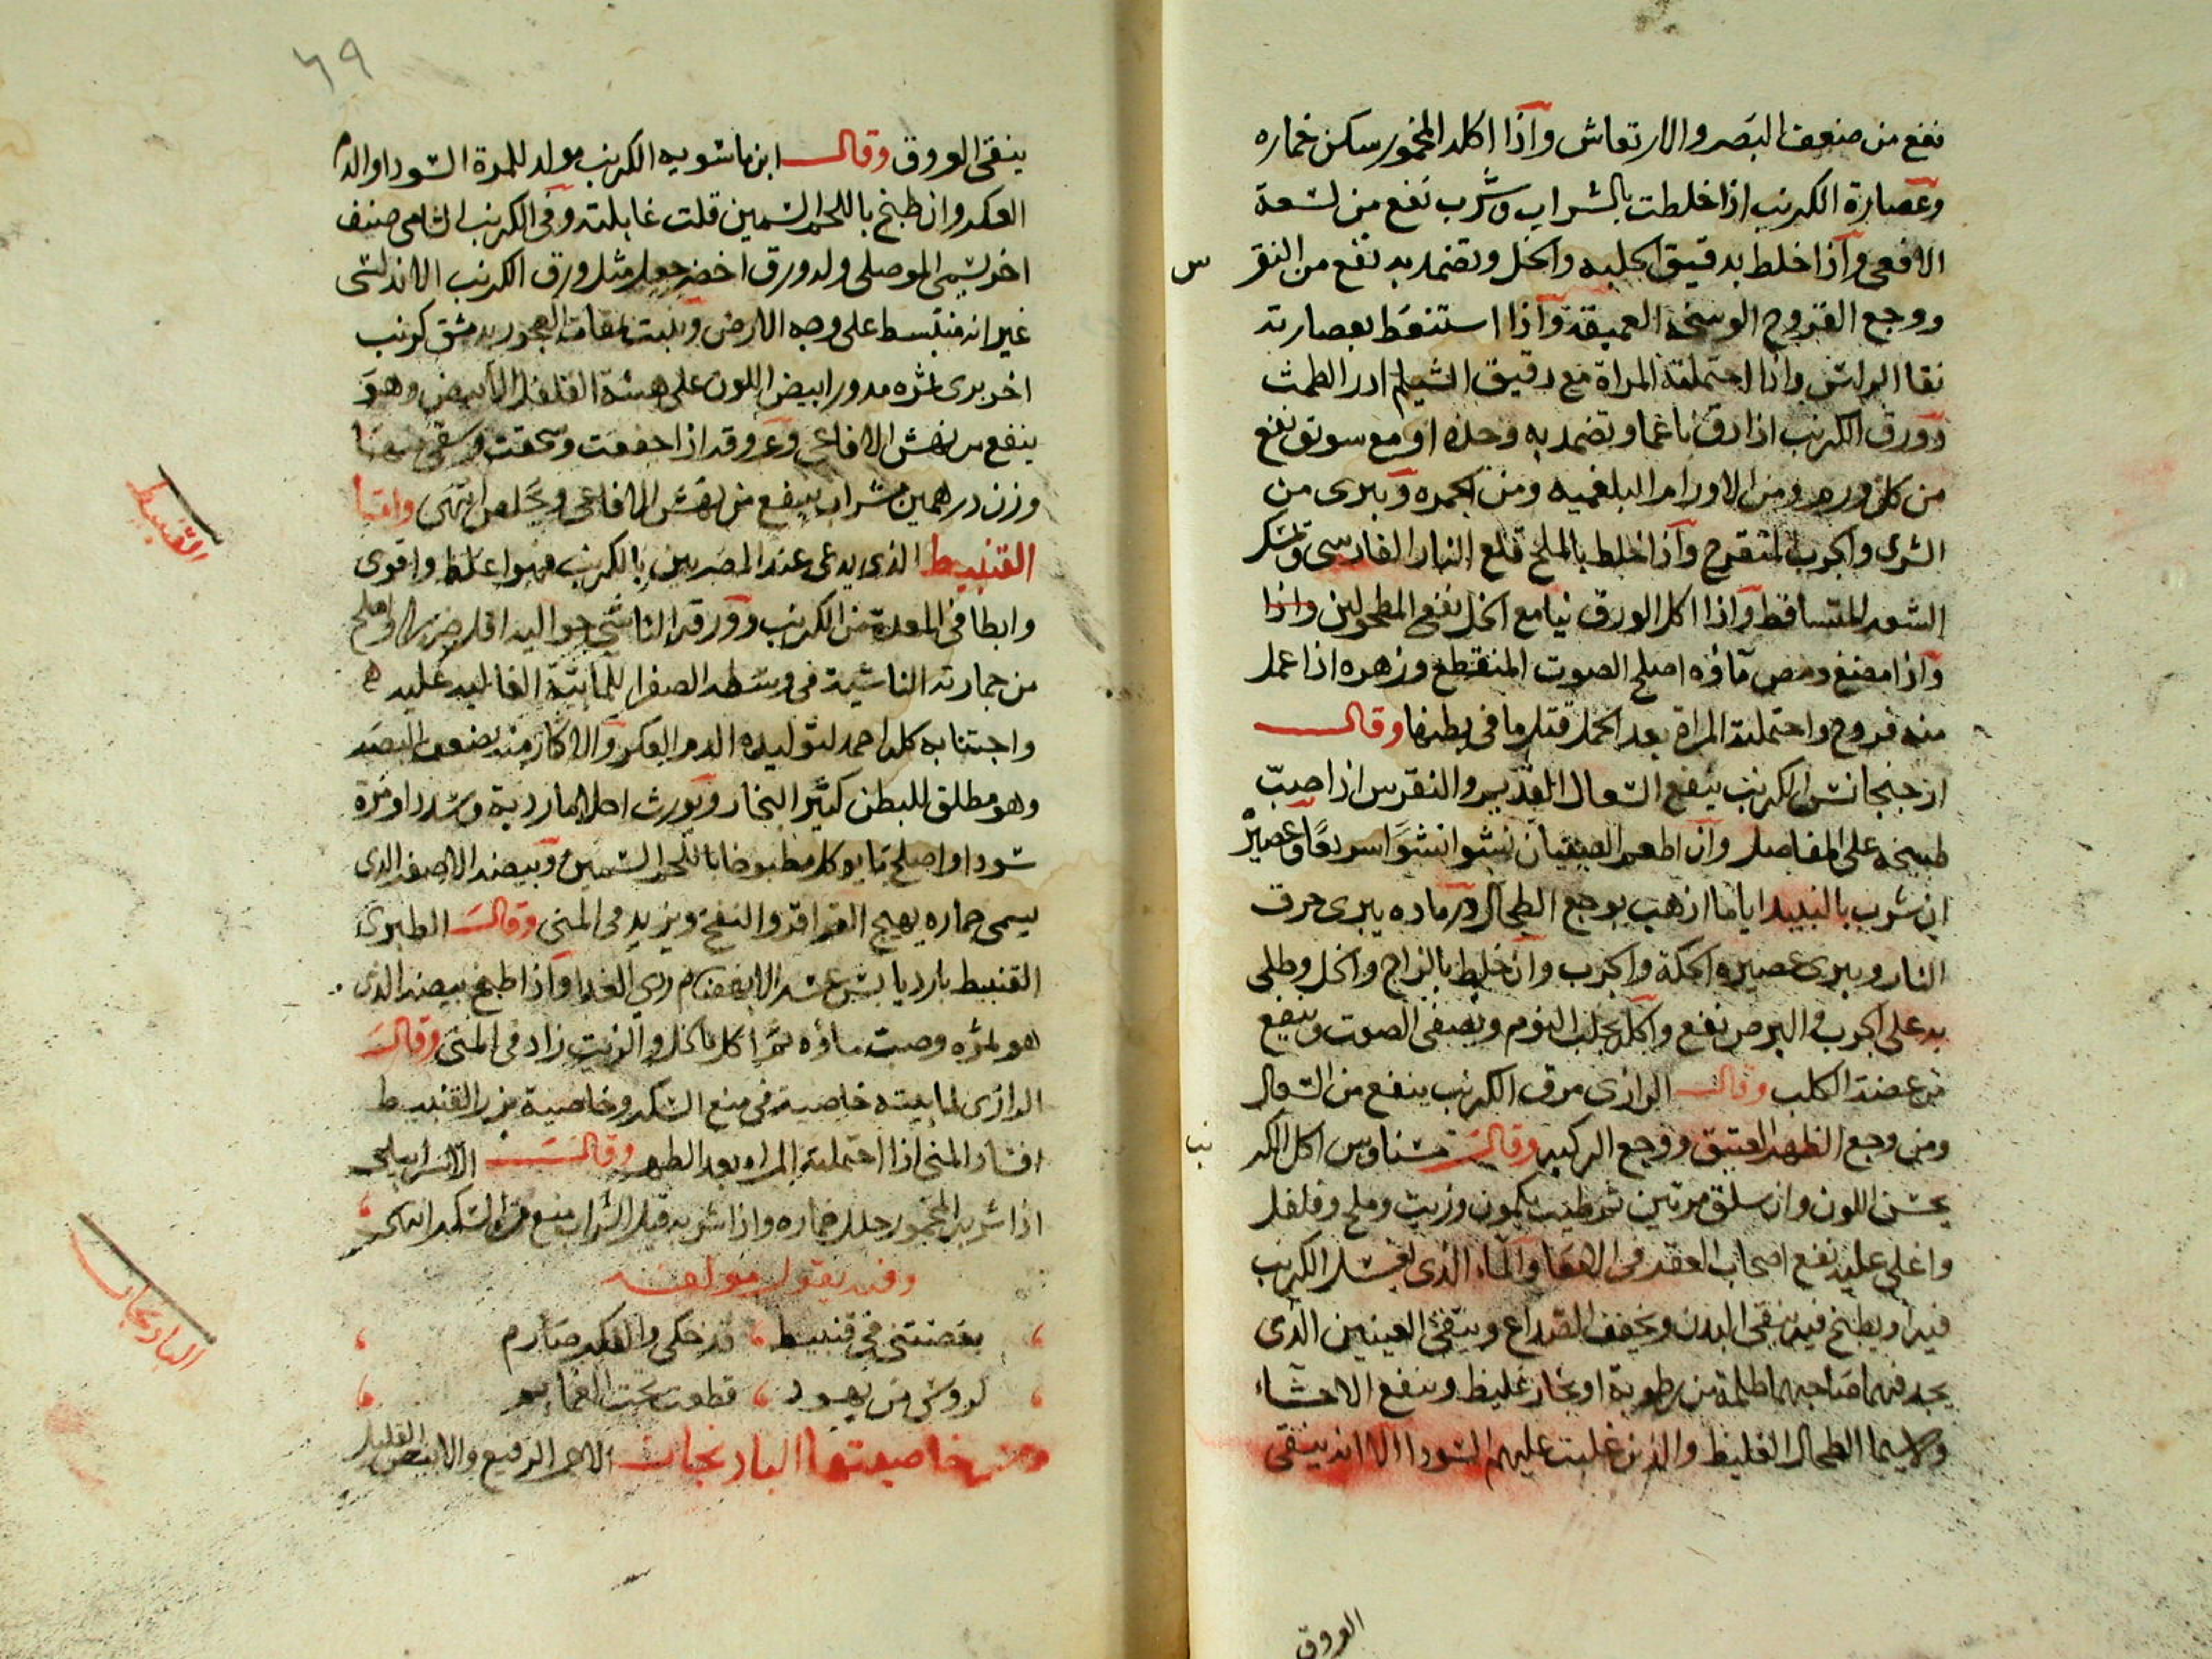 نفع من ضعف البصر والارتعاش واذا اكله المخمور سكن خماره
وعصارة الكرنب اذا خلطت بالشراب وشرب نفع من لسعة
الافعى واذا خلط بدقيق الحلبه والخل وتضمد به نفع من النقر
س
ووجع القروح الوسخه العميقة واذا استنعط بعصارته
نقا الراس واذا احتملته المراة مع دقيق الشيلم ادر الطمث
وورق الكرنب اذا دق ناعما وتضمد به وحده او مع سويق نفع
من كل ورم ومن الاورام البلغميه ومن الحمره ويبرى من
الشرى والجرب المتقرح واذا خلط بالملح قلع النار الفارسى وتمسك
الشعر المتساقط واذا اكل الورق نيا مع الخل نفع المطحولين واذا
واذا مضغ ومص ماؤه اصلح الصوت المنقطع وزهره اذا عمل
منه فروج واحتملته المراة بعد الحمل قتل ما في بطنها وقال
ازجنجانس الكرنب ينفع السعال القديم والنقرس اذا صب
طبيخه على المفاصل وان اطعم الصبيان نشوا نشوا سريعا وعصيره
ان شرب بالنبيد اياما اذهب بوجع الطحال ورماده يبرى حرق
النار ويبرى عصيره الحكة والجرب وان خلط بالزاج والخل وطلى
به على الجرب والبرص نفع واكله يجلب النوم ويصفى الصوت وينفع
من عضة الكلب وقال الرازى مرق الكرنب ينفع من السعال
ومن وجع الظهر العتيق ووجع الركبه وقال اكل الكر
نب
يحسن اللون وان سلق مرتين ثم طيب بكمون وزيت وملح وفلفل
واغلى عليه نفع اصحاب العقد فى الامعا والماء الذى يغسل الكرنب
فيه او يطبخ فيه ينقى البدن ويخفف الصداع وينقى العينين الذى
يجد فيهما صاحبهما ظلمة من رطوبة او بخار غليظ وينفع الاحشاء
ولاسيما الطحال الغليظ والذين غلبت عليهم السودا الا انه ينقى
العروق
٦٩
ينقى العروق وقال ابن ماسويه الكرنب مولد للمرة السودا والدم
العكر وان طبخ باللحم السمين قلت غايلته وفى الكرنب الشامى صنف
اخر يسمى الموصلى وله ورق اخضر جعد مثل ورق الكرنب الاندلسى
غير انه منبسط على وجه الارض وينبت بدمشق كرنب
اخر برى ثمره مدور ابيض اللون على هيئة الفلفل الابيض وهو
ينفع من نهش الافاعى وعروقه اذا جففت وسحقت وسقى منها
وزن درهمين بشراب ينفع من نهش الافاعى ويخلص انتهى واما
القنبيط الذى يدعى عند المصريين بالكرنب فهو اغلظ واقوى
وابطا فى المعدة من الكرنب وورقه الناشى حواليه اقل ضررا واصلح
من جمارته الناشية فى وسطه الصفرا للمائية الغالبه عليه
واجتنابه كله احمد لتوليده الدم العكر والاكثار منه يضعف البصر
وهو مطلق للبطن كثير البخار ويورث احلاما ردية وسددا ومرة
سودا واصلح ما يوكل مطبوخا باللحم السمين وبيضه الاصفر الذى
يسمى جماره يهيج القراقر والنفخ ويزيد فى المنى وقال الطبرى
القنبيط بارد يابس عسر الانهضام ردى الغدا واذا طبخ بيضه الذى
هو ثمره وصب ماؤه ثم اكل بالخل والزيت زاد فى المنى وقال
الرازى لمائيته خاصية فى منع السكر وخاصية بزر القنبيط
افساد المنى اذا احتملته المراه بعد الطهر وقال الاسرايلى
اذا شربه المخمور حلل خماره واذا شربه قبل الشراب منع من السكر انتهى
وفيه يقول مولفه
بغضتنى فى قنبيط قد حكى والفكر صارم
لروس من يهود قطعت تحت العمايم
ومن خاصيتها البادنجان الاحمر الرفيع والابيض القليل
القنبيط
البادنجان